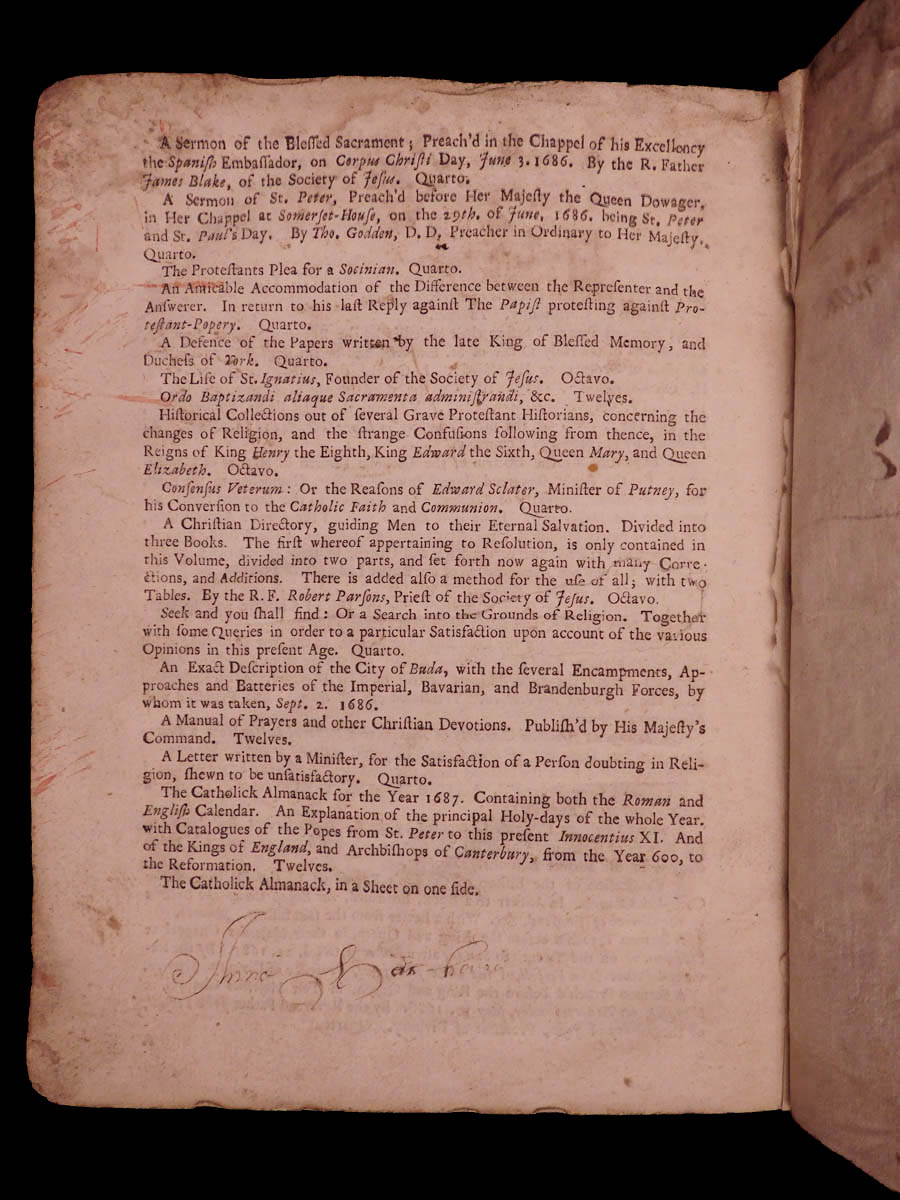 A Sermon of the Bleſſed Sacrament; Preach'd in the Chappel of his Excellency
the Spaniſh Embaſſador, on Corpus Chriſti Day, June 3. 1686. By the R. Father
James Blake, of the Society of Jeſus. Quarto.
A Sermon of St. Peter, Preach'd before Her Majeſty the Queen Dowager,
in Her Chappel at Somerſet-Houſe, on the 29th. of June, 1686. being St. Peter
and St. Paul's Day. By Tho. Godden, D. D, Preacher in Ordinary to Her Majeſty.
Quarto.
The Proteſtants Plea for a Socinian. Quarto.
An Amicable Accommodation of the Difference between the Repreſenter and the
Anſwerer. In return to his laſt Reply againſt The Papiſt proteſting againſt Pro-
teſtant-Popery. Quarto.
A Defence of the Papers written by the late King of Bleſſed Memory, and
Ducheſs of York. Quarto.
The Life of St. Ignatius, Founder of the Society of Jeſus. Octavo.
Ordo Baptizandi aliaque Sacramenta adminiſtrandi, &c. Twelves.
Hiſtorical Collections out of ſeveral Grave Proteſtant Hiſtorians, concerning the
changes of Religion, and the ſtrange Confuſions following from thence, in the
Reigns of King Henry the Eighth, King Edward the Sixth, Queen Mary, and Queen
Elizabeth. Octavo.
Conſenſus Veterum: Or the Reaſons of Edward Sclater, Miniſter of Putney, for
his Converſion to the Catholic Faith and Communion. Quarto.
A Chriſtian Directory, guiding Men to their Eternal Salvation. Divided into
three Books. The firſt whereof appertaining to Reſolution, is only contained in
this Volume, divided into two parts, and ſet forth now again with many Corre-
ctions, and Additions. There is added alſo a method for the uſe of all; with two
Tables. By the R. F. Robert Parſons, Prieſt of the Society of Jeſus. Octavo.
Seek and you ſhall find: Or a Search into the Grounds of Religion. Together
with ſome Queries in order to a particular Satisfaction upon account of the various
Opinions in this preſent Age. Quarto.
An Exact Deſcription of the City of Buda, with the ſeveral Encampments, Ap-
proaches and Batteries of the Imperial, Bavarian, and Brandenburgh Forces, by
whom it was taken, Sept. 2. 1686.
A Manual of Prayers and other Chriſtian Devotions. Publiſh'd by His Majeſty's
Command. Twelves.
A Letter written by a Miniſter, for the Satisfaction of a Perſon doubting in Reli-
gion, ſhewn to be unſatisfactory. Quarto.
The Catholick Almanack for the Year 1687. Containing both the Roman and
Engliſh Calendar. An Explanation of the principal Holy-days of the whole Year.
with Catalogues of the Popes from St. Peter to this preſent Innocentius XI. And
of the Kings of England, and Archbiſhops of Canterbury, from the Year 600, to
the Reformation. Twelves.
The Catholick Almanack, in a Sheet on one ſide.